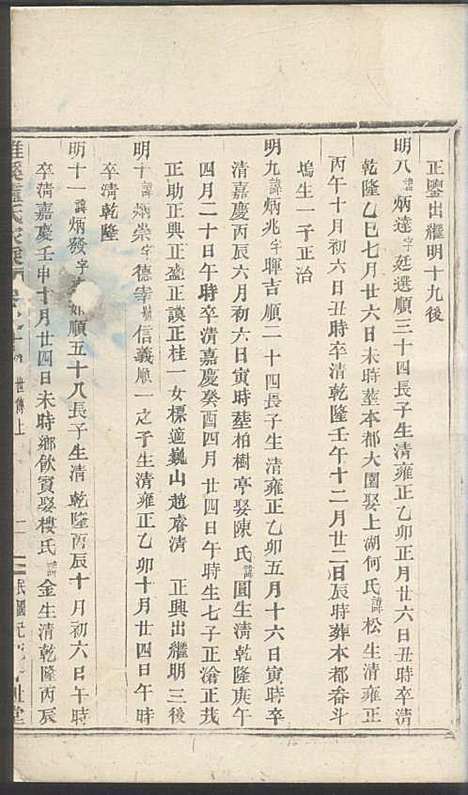 正鑒出繼明十九後
明八諱炳達字廷選順三十四長子生清雍正乙卯正月廿六日丑時卒清
乾隆乙巳七月廿六日未時葬本都大園娶上湖何氏諱松生清雍正
丙午十月初六日丑時卒清乾隆壬午十二月廿二日辰時葬本都畚斗
塢生一子正治
明九諱炳兆字暉吉順二十四長子生清雍正乙卯五月十六日寅時卒
清嘉慶丙辰六月初六日寅時塟柏樹亭娶陳氏諱圓生清乾隆庚午
四月二十日午時卒清嘉慶癸酉四月廿四日午時生七子正滄正茂
正助正興正盛正謨正桂一女標適巍山趙睿清 正興出繼明三後
明十諱炳崇字德宰號信義順一之子生清雍正乙卯十月廿四日午時
卒清乾隆
明十一諱炳發字 順五十八長子生清乾隆丙辰十月初六日午時
卒清嘉慶壬申十月廿四日未時鄉飲賓娶樓氏諱金生清乾隆丙辰
世傳上 二 民國元 堂